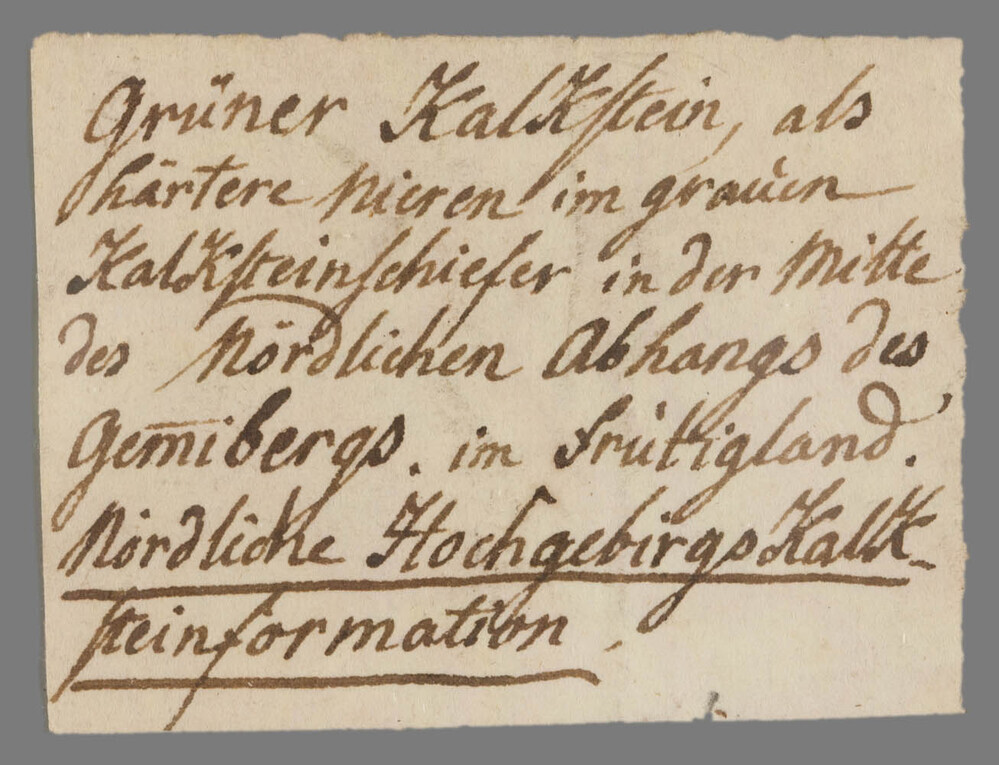 Grüner KalKstein, als
härtere Nieren im graúen
KalKsteinschiefer in der Mitte
des Nördlichen Abhangs des
Gem̅ibergs. im Frútigland.
Nördliche HochgebirgsKalK-
steinformation.